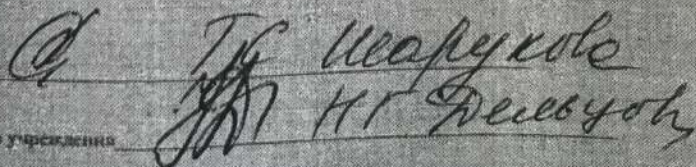 ТК Шарукова
учреждения НГ Дельцов